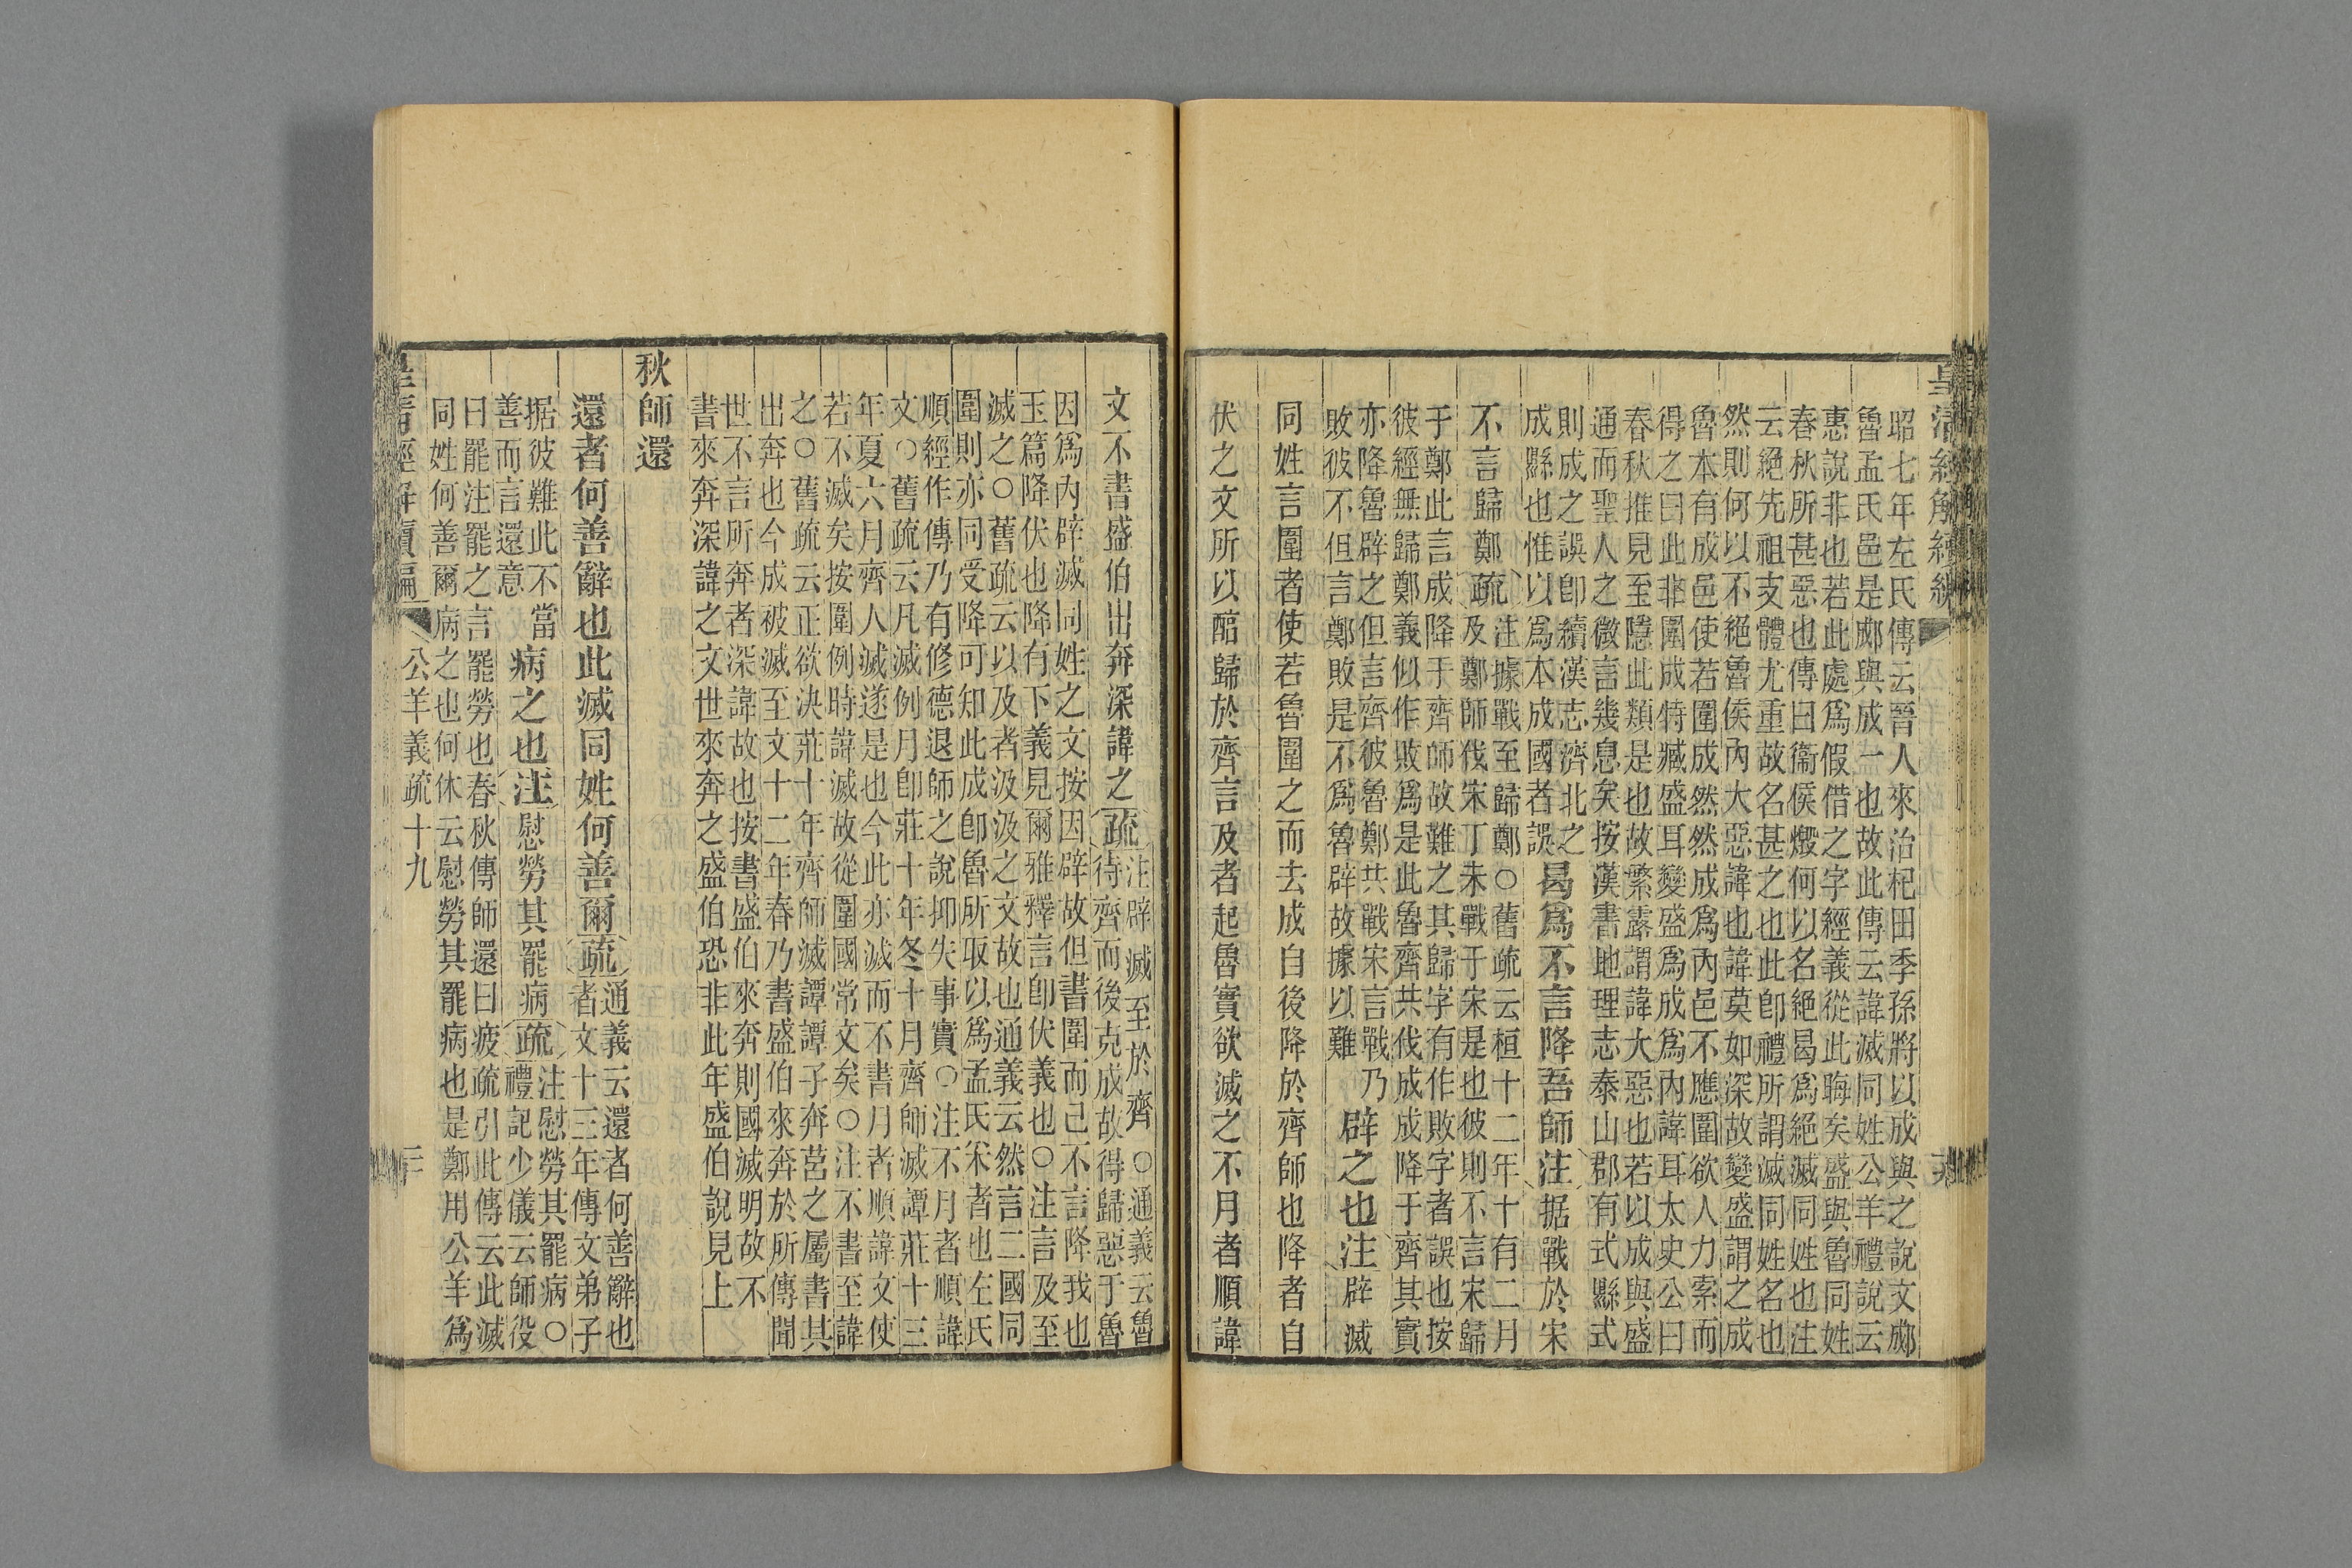 皇清經解續編
昭七年左氏傳云晉人來治杞田季孫將以成與之說文郕
魯孟氏邑是郕與成一也故此傳云諱滅同姓公羊禮說云
惠說非也若此處爲假借之字經義從此晦矣盛與魯同姓
春秋所甚惡也傳曰衞侯燬何以名絕曷爲絕滅同姓也注
云絕先祖支體尤重故名甚之也此卽禮所謂滅同姓名也
然則何以不絕魯侯內大惡諱也諱莫如深故變盛謂之成
魯本有成邑使若圍成然然成爲內邑不應圍欲人力索而
得之曰此非圍成特臧盛耳變盛爲成爲內諱耳太史公曰
春秋推見至隱此類是也故繁露謂諱大惡也若以成與盛
通而聖人之微言幾息矣按漢書地理志泰山郡有式縣式
則成之誤卽續漢志濟北之
成縣也惟以爲本成國者誤
曷爲不言降吾師注据戰於宋
不言歸鄭疏
注據戰至歸鄭○舊疏云桓十二年十有二月
及鄭師伐宋丁未戰于宋是也彼則不言宋歸
于鄭此言成降于齊師故難之其歸字有作敗字者誤也按
彼經無歸鄭義似作敗爲是此魯齊共伐成成降于齊其實
亦降魯辟之但言齊彼魯鄭共戰宋言戰乃
敗彼不但言鄭敗是不爲魯辟故據以難
辟之也注辟滅
同姓言圍者使若魯圍之而去成自後降於齊師也降者自
伏之文所以醕歸於齊言及者起魯實欲滅之不月者順諱
文不書盛伯出奔深諱之疏
注辟滅至於齊○通義云魯
待齊而後克成故得歸惡于魯
因爲內辟滅同姓之文按因辟故但書圍而已不言降我也
玉篇降伏也降有下義見爾雅釋言卽伏義也○注言及至
滅之○舊疏云以及者汲汲之文故也通義云然言二國同
圍則亦同受降可知此成卽魯所取以爲孟氏采者也左氏
順經作傳乃有修德退師之說抑失事實○注不月者順諱
文○舊疏云凡滅例月卽莊十年冬十月齊師滅譚莊十三
年夏六月齊人滅遂是也今此亦滅而不書月者順諱文使
若不滅矣按圍例時諱滅故從圍國常文矣○注不書至諱
之○舊疏云正欲決莊十年齊師滅譚譚子奔莒之屬書其
出奔也今成被滅至文十二年春乃書盛伯來奔於所傳聞
世不言所奔者深諱故也按書盛伯來奔則國滅明故不
書來奔深諱之文世來奔之盛伯恐非此年盛伯說見上
秋師還
還者何善辭也此滅同姓何善爾疏
通義云還者何善辭也
者文十三年傳文弟子
据彼難此不當
善而言還意
病之也注慰勞其罷病疏
注慰勞其罷病○
禮記少儀云師役
曰罷注罷之言罷勞也春秋傳師還曰疲疏引此傳云此滅
同姓何善爾病之也何休云慰勞其罷病也是鄭用公羊爲
公羊義疏十九